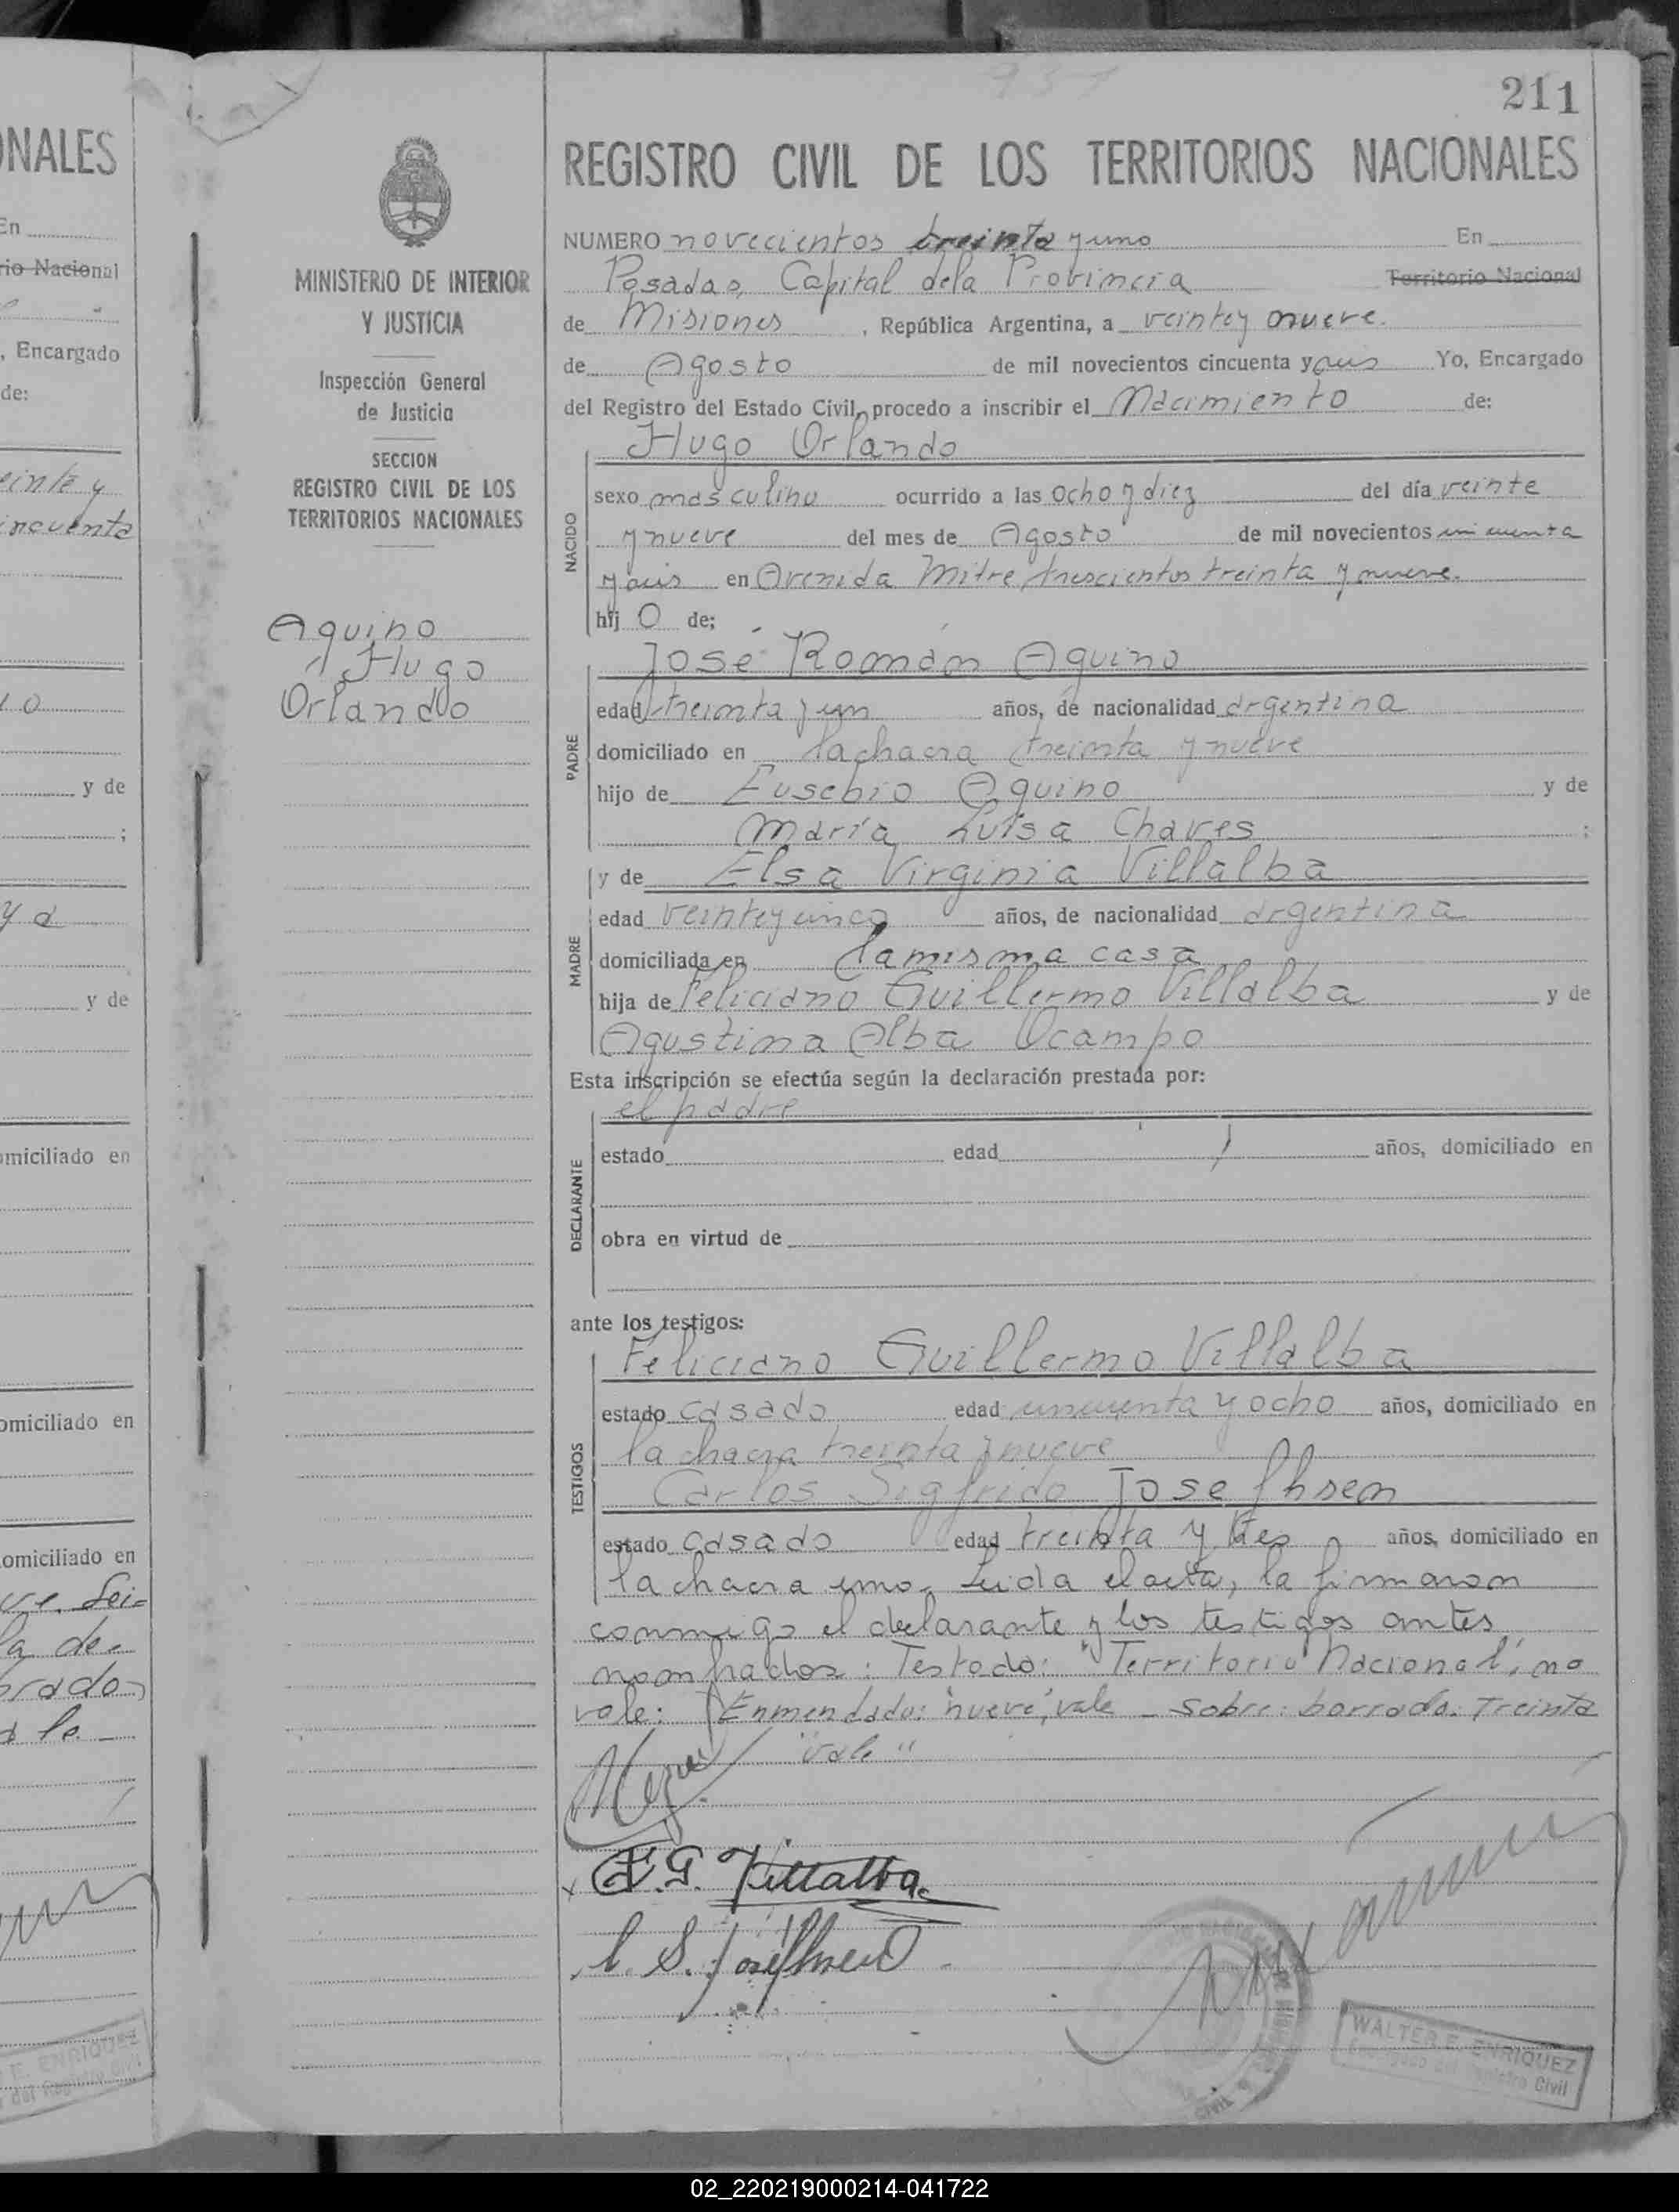 211
REGISTRO CIVIL DE LOS TERRITORIOS NACIONALES
NUMERO novecientos treinta y uno En
Posadas, Capital dela Provincia Territorio Nacional
de Misiones , República Argentina, a veintey nueve.
de Agosto de mil novecientos cincuenta y seis Yo, Encargado
del Registro del Estado Civil, procedo a inscribir el Nacimiento de:
Hugo Orlando
NACIDO
sexo masculino ocurrido a las ocho y diez del día veinte
y nueve del mes de Agosto de mil novecientos cincuenta
y seis en Avenida Mitre, trescientos treinta y nueve.
hij o de;
José Román Aquino
PADRE
edad treinta y un años, de nacionalidad argentina
domiciliado en la chacra treinta y nueve
hijo de Eusebio Aquino y de
María Luisa Chaves ;
y de Elsa Virginia Villalba
MADRE
edad veintey cinco años, de nacionalidad argentina
domiciliada en la misma casa
hija de Feliciano Guillermo Villalba y de
Agustina Alba Ocampo
Esta inscripción se efectúa según la declaración prestada por:
el padre
DECLARANTE
estado edad años, domiciliado en
obra en virtud de
ante los testigos:
Feliciano Guillermo Villalba
TESTIGOS
estado casado edad cincuenta y ocho años, domiciliado en
la chacra treinta y nueve
Carlos Sigfrido Josefhsen
estado casado edad treinta y tres años, domiciliado en
la chacra uno. Leida el acta, la firmaron
conmigo el declarante y los testigos antes
nombrados: Testado: "Territorio Nacional", no
vale: Enmendado: "nueve", vale - sobre: borrado: Treinta
"vale"
F. G. Villalba.
C. S. Josefhsen
WALTER E. ENRIQUEZ
Encargado del Registro Civil
MINISTERIO DE INTERIOR
Y JUSTICIA
Inspección General
de Justicia
SECCION
REGISTRO CIVIL DE LOS
TERRITORIOS NACIONALES
Aquino
Hugo
Orlando
ONALES
En
rio Nacional
, Encargado
de:
einte y
incuenta
y de
;
y de
omiciliado en
omiciliado en
omiciliado en
E. ENRIQUEZ
del Registro Civil
02_220219000214-041722